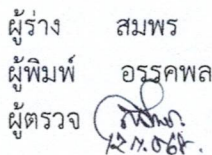 ผู้ร่าง สมพร
ผู้พิมพ์ อรรคพล
ผู้ตรวจ